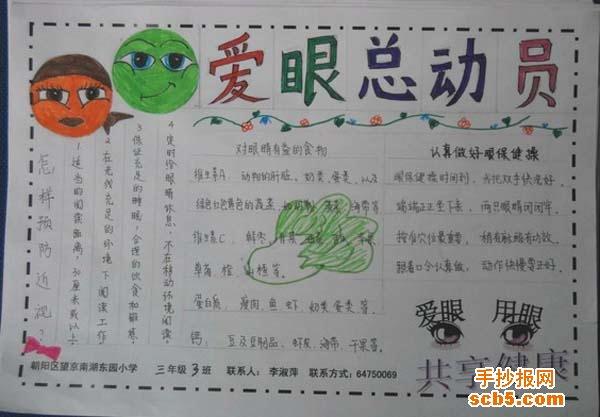 爱眼总动员
怎样预防近视?
1 适当的阅读距离,30厘米或以上
2 在光线充足的环境下阅读工作
3 保证充足的睡眠,合理的饮食和锻炼
4 定时给眼睛休息,不在移动环境阅读
对眼睛有益的食物
维生素A、动物的肝脏、奶类、蛋类、以及
绿色红色黄色的蔬菜、海带等
维生素C、鲜枣、
草莓、橙、山楂等。
蛋白质、瘦肉、鱼、虾、奶类、蛋类等
钙、豆及豆制品、虾皮、海带、干果等。
认真做好眼保健操
眼保健操时间到,先把双手快洗好。
端端正正坐下来,两只眼睛闭闭牢。
按准穴位最重要,稍有酸胀有功效。
跟着口令认真做,动作快慢要正好。
爱眼 用眼
共享健康
朝阳区望京南湖东园小学 三年级3班 联系人:李淑萍 联系方式:64750069
手抄报网
scb5.com